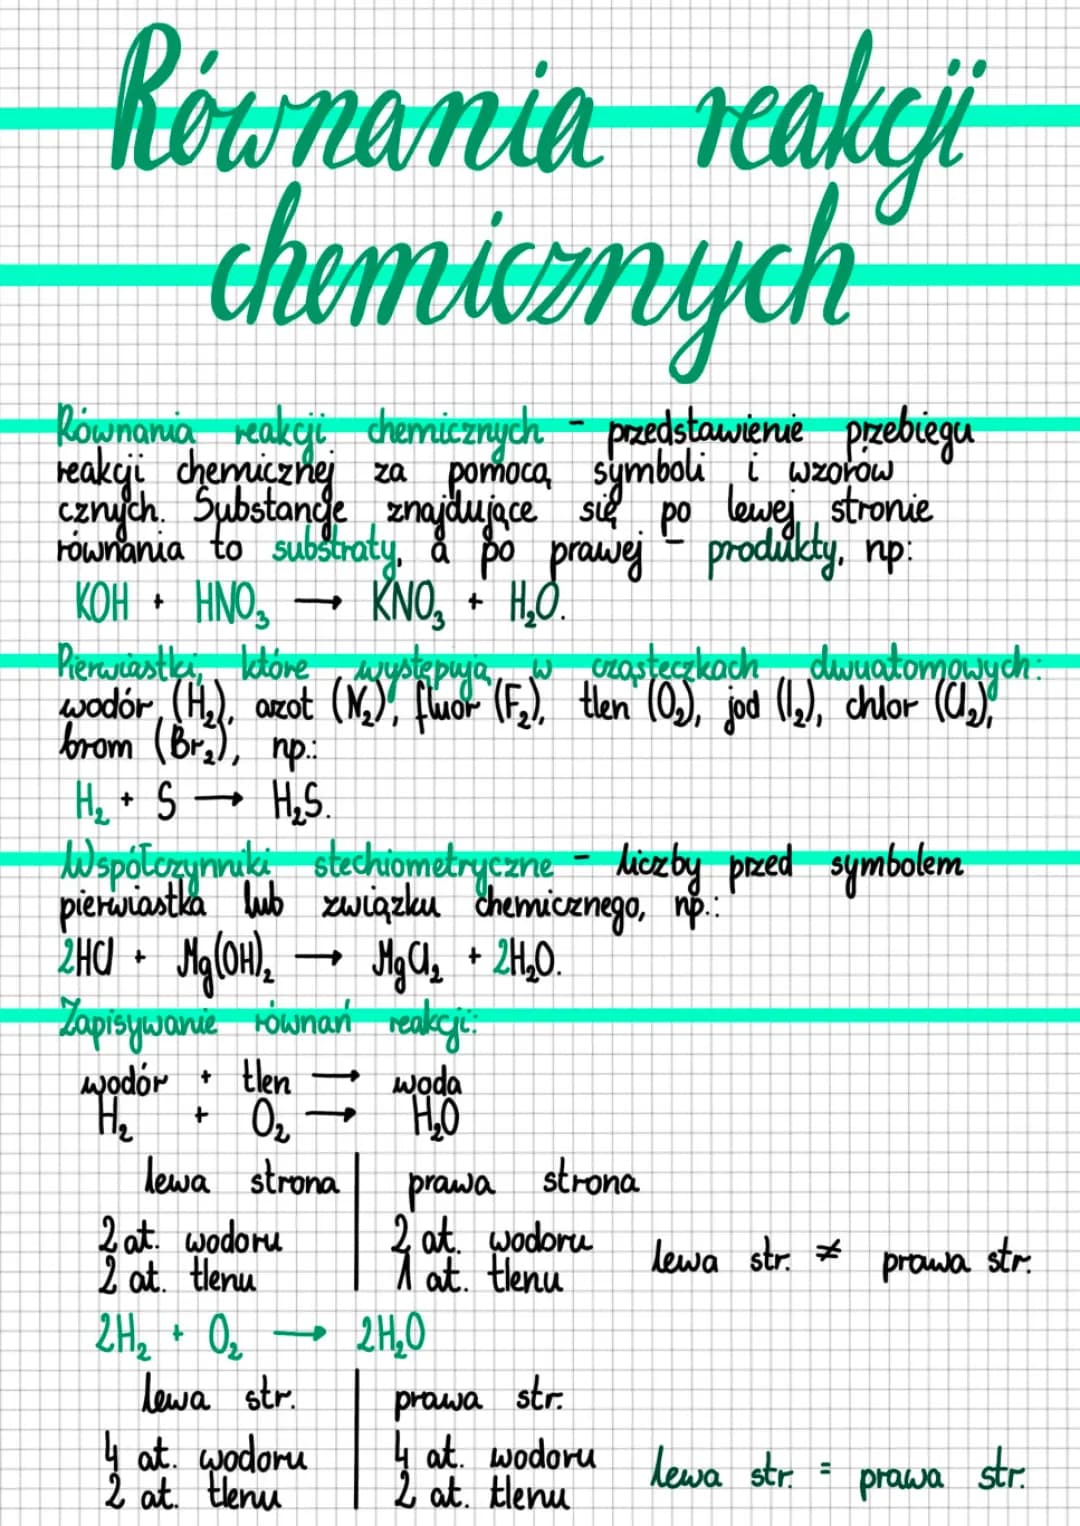 Równania reakcji
chemicznych
Równania reakcji chemicznych - przedstawienie przebiegu
reakcji chemicznej za pomocą symboli i wzorów
cznych. Substancje znajdujące się po lewej stronie
równania to substraty, a po prawej - produkty, np:
KOH + HNO₃ → KNO₃ + H₂O.
Pierwiastki, które występują w cząsteczkach dwuatomowych:
wodór (H₂), azot (N₂), fluor (F₂), tlen (O₂), jod (I₂), chlor (Cl₂),
brom (Br₂), np.:
H₂ + S → H₂S.
Współczynniki stechiometryczne - liczby przed symbolem
pierwiastka lub związku chemicznego, np.:
2HCl + Mg(OH)₂ → MgCl₂ + 2H₂O.
Zapisywanie równań reakcji:
wodór + tlen → woda
H₂ + O₂ → H₂O
lewa strona | prawa strona
2 at. wodoru | 2 at. wodoru
2 at. tlenu | 1 at. tlenu
lewa str. ≠ prawa str.
2H₂ + O₂ → 2H₂O
lewa str. | prawa str.
4 at. wodoru | 4 at. wodoru
2 at. tlenu | 2 at. tlenu
lewa str. = prawa str.